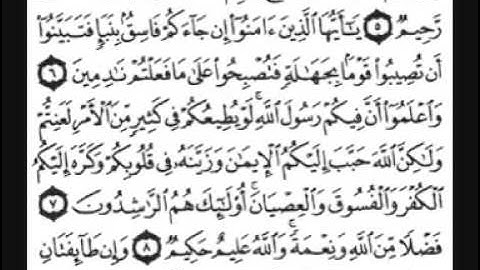 رَّحِيمٌ ٥ يَٰٓأَيُّهَا ٱلَّذِينَ ءَامَنُوٓا۟ إِن جَآءَكُمْ فَاسِقٌۢ بِنَبَإٍ فَتَبَيَّنُوٓا۟
أَن تُصِيبُوا۟ قَوْمًۢا بِجَهَٰلَةٍ فَتُصْبِحُوا۟ عَلَىٰ مَا فَعَلْتُمْ نَٰدِمِينَ ٦
وَٱعْلَمُوٓا۟ أَنَّ فِيكُمْ رَسُولَ ٱللَّهِ ۚ لَوْ يُطِيعُكُمْ فِى كَثِيرٍ مِّنَ ٱلْأَمْرِ لَعَنِتُّمْ
وَلَٰكِنَّ ٱللَّهَ حَبَّبَ إِلَيْكُمُ ٱلْإِيمَٰنَ وَزَيَّنَهُۥ فِى قُلُوبِكُمْ وَكَرَّهَ إِلَيْكُمُ
ٱلْكُفْرَ وَٱلْفُسُوقَ وَٱلْعِصْيَانَ ۚ أُو۟لَٰٓئِكَ هُمُ ٱلرَّٰشِدُونَ ٧
فَضْلًا مِّنَ ٱللَّهِ وَنِعْمَةً ۚ وَٱللَّهُ عَلِيمٌ حَكِيمٌ ٨ وَإِن طَآئِفَتَانِ